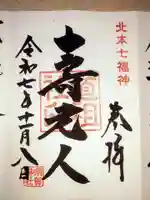 北本七福神
奉拝
寿老人
令和七年十一月八日